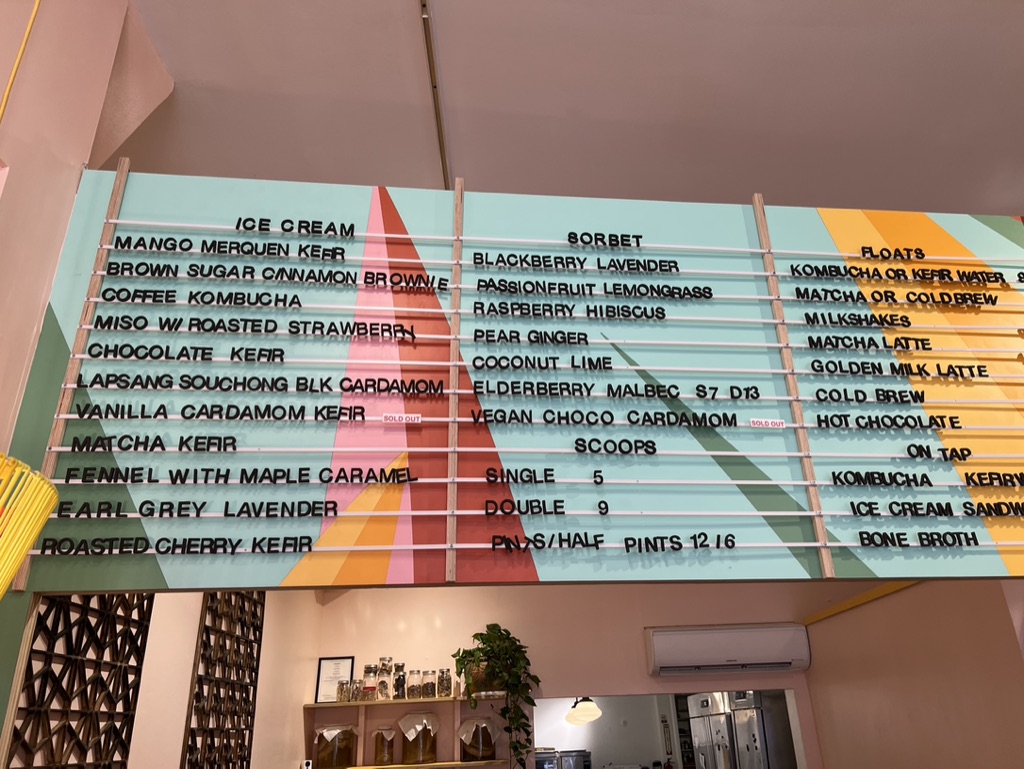 ICE CREAM
MANGO MERQUEN KEFIR
BROWN SUGAR CINNAMON BROWNIE
COFFEE KOMBUCHA
MISO W/ ROASTED STRAWBERRY
CHOCOLATE KEFIR
LAPSANG SOUCHONG BLK CARDAMOM
VANILLA CARDAMOM KEFIR SOLD OUT
MATCHA KEFIR
FENNEL WITH MAPLE CARAMEL
EARL GREY LAVENDER
ROASTED CHERRY KEFIR
SORBET
BLACKBERRY LAVENDER
PASSIONFRUIT LEMONGRASS
RASPBERRY HIBISCUS
PEAR GINGER
COCONUT LIME
ELDERBERRY MALBEC S7 D13
VEGAN CHOCO CARDAMOM SOLD OUT
SCOOPS
SINGLE 5
DOUBLE 9
PIN7S/HALF PINTS 12/6
FLOATS
KOMBUCHA OR KEFIR WATER
MA7CHA OR COLD BREW
MILKSHAKES
MATCHA LATTE
GOLDEN MILK LATTE
COLD BREW
HOT CHOCOLATE
ON TAP
KOMBUCHA KEFIRW
ICE CREAM SANDW
BONE BROTH